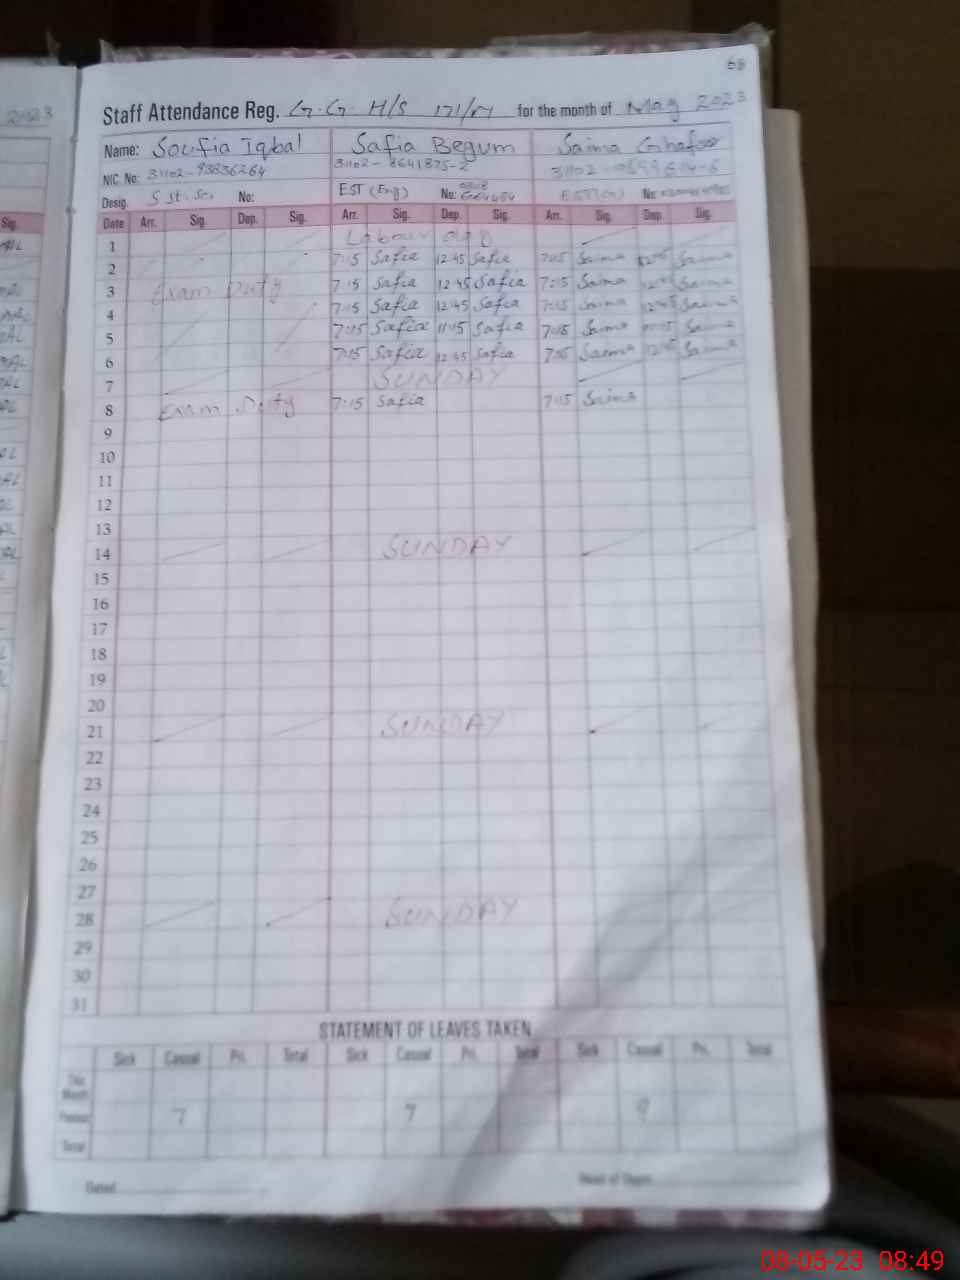 68
Staff Attendance Reg. G.G. H/S 171/M for the month of May 2023
Name: Soufia Iqbal Safia Begum Saima Ghafoor
NIC. No: 31102-93836264 31102-8641875-2
Desig. S.St.Sci No: EST (Eng) No: No:
Date Arr. Sig. Dep. Sig. Arr. Sig. Dep. Sig. Arr. Sig. Dep. Sig.
1 Labour day
2 7:15 Safia 12:45 Safia 7:15 Saima Saima
3 Exam Duty 7:15 Safia 12:45 Safia 7:15 Saima Saima
4 7:15 Safia 12:45 Safia 7:15 Saima 12:45 Saima
5 7:15 Safia 11:15 Safia 7:15 Saima 11:15 Saima
6 7:15 Safia 12:45 Safia 7:15 Saima 12:45 Saima
7 SUNDAY
8 Exam Duty 7:15 Safia 7:15 Saima
9
10
11
12
13
14 SUNDAY
15
16
17
18
19
20
21 SUNDAY
22
23
24
25
26
27
28 SUNDAY
29
30
31
STATEMENT OF LEAVES TAKEN
Sick Casual Pri. Total Sick Casual Pri. Total Sick Casual Pri. Total
This Month
Previous 7 7
Total
Dated Head of Deptt.
08-05-23 08:49